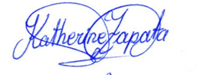 Katherine Zapata